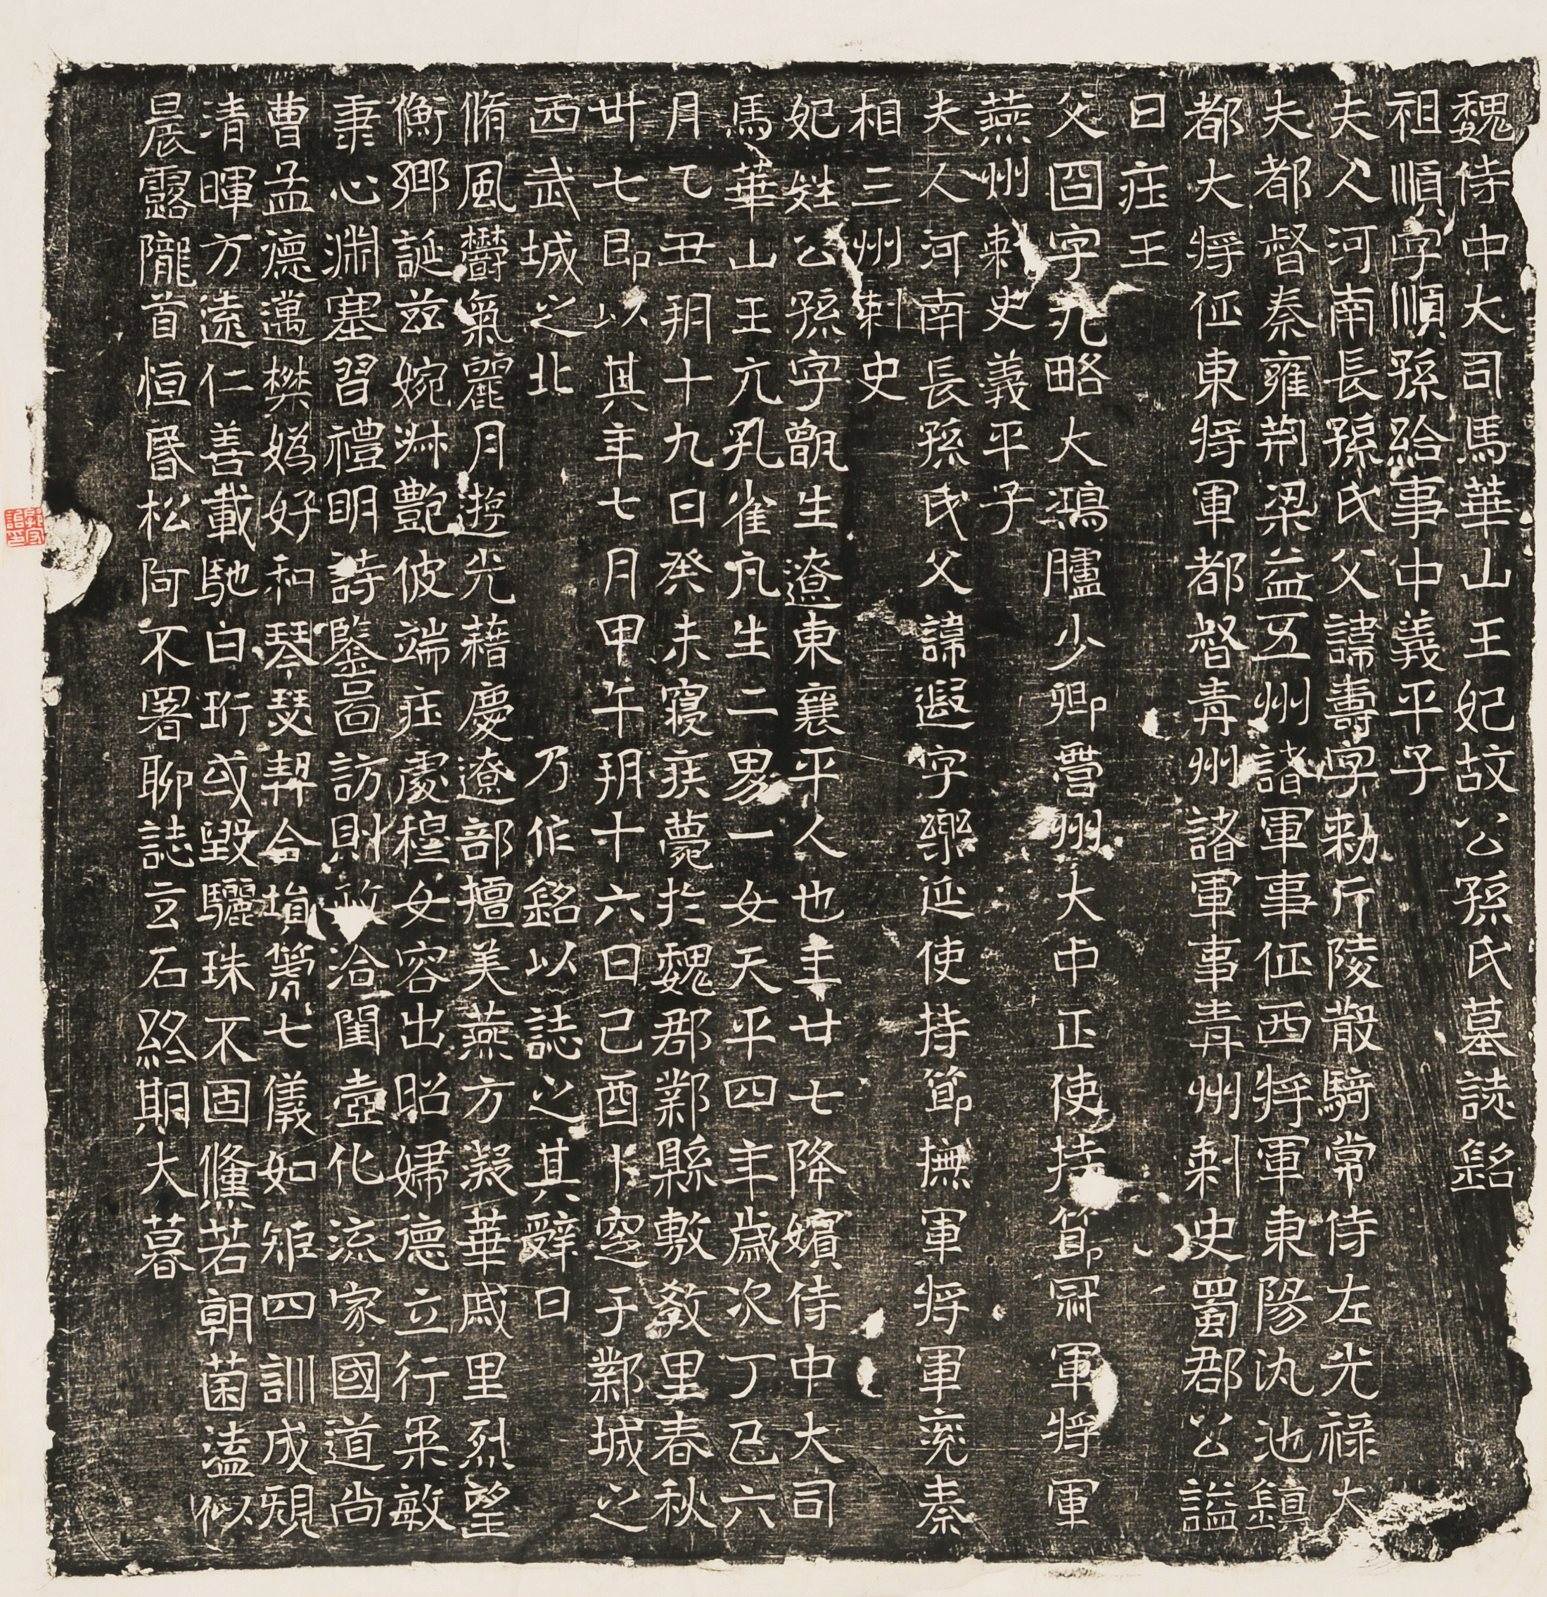 魏侍中大司馬華山王妃故公孫氏墓誌銘
祖順字順孫給事中義平子
夫人河南長孫氏父諱壽字勅斤陵散騎常侍左光祿大
夫都督秦雍荊梁益五州諸軍事征西將軍東陽仇池鎮
都大將征東將軍都督青州諸軍事青州刺史蜀郡公謚
曰莊王
父冏字九略大鴻臚少卿營州大中正使持節冠軍將軍
燕州刺史義平子
夫人河南長孫氏父諱遐字樂延使持節撫軍將軍兗秦
相三州刺史
妃姓公孫字甑生遼東襄平人也年廿七降嬪侍中大司
馬華山王亢孔雀亢生二男一女天平四年歲次丁巳六
月乙丑朔十九日癸未寢疾薨於魏郡鄴縣敷教里春秋
卅七即以其年七月甲午朔十六日己酉卜窆于鄴城之
西武城之北 乃作銘以誌之其辭曰
脩風欝氣麗月遊光藉慶遼部擅美燕方凝華戚里烈望
衡鄉誕茲婉淋艷彼端莊處穆女容出昭婦德立行柔敏
秉心淵塞習禮明詩鑒啚訪則 洽閨壼化流家國道尚
曹孟德邁樊嫣好和琴瑟契合塤篪七儀如矩四訓成規
清暉方遠仁善載馳白珩或毀驪珠不固儵若朝菌溘似
晨露隴首恒昏松阿不署聊誌玄石終期大暮